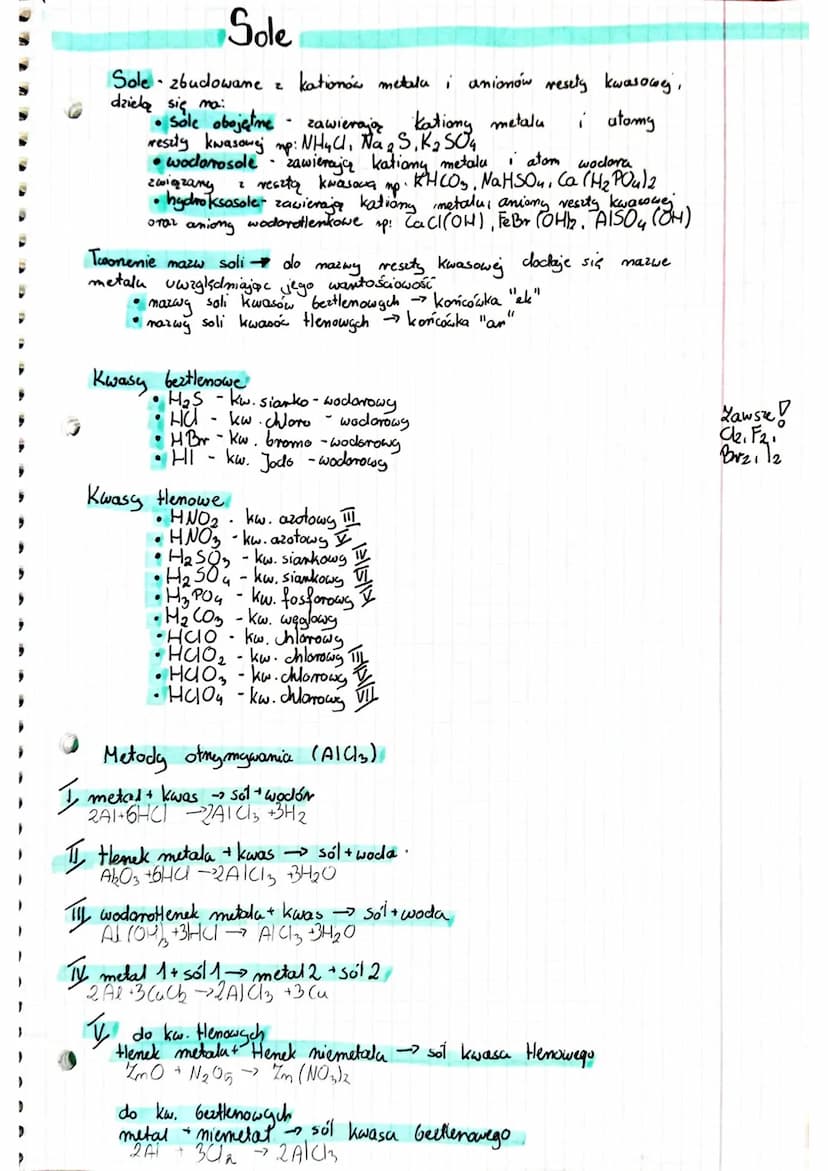 Sole
Sole - zbudowane z kationów metalu i anionów reszty kwasowej,
dzielą się na:
• sole obojętne - zawierają kationy metalu i atomy
reszty kwasowej np: NH₄Cl, Na₂S, K₂SO₄
• wodorosole - zawierają kationy metalu i atom wodoru
związany z resztą kwasową np. KHCO₃, NaHSO₄, Ca(H₂PO₄)2
• hydroksosole - zawierają kationy metalu, aniony reszty kwasowej
oraz aniony wodorotlenkowe np: CaCl(OH), FeBr(OH)₂, AlSO₄(OH)
Tworzenie nazw soli → do nazwy reszty kwasowej dodaje się nazwe
metalu uwzględniając jego wartościowość
• nazwy soli kwasów beztlenowych → końcówka "ek"
• nazwy soli kwasów tlenowych → końcówka "an"
Kwasy beztlenowe
• H₂S - kw. siarko - wodorowy
• HCl - kw. chloro - wodorowy
• HBr - kw. bromo - wodorowy
• HI - kw. Jodo - wodorowy
Zawsze!
Cl₂, F₂,
Br₂, I₂
Kwasy tlenowe
• HNO₂ - kw. azotowy III
• HNO₃ - kw. azotowy V
• H₂SO₃ - kw. siarkowy IV
• H₂SO₄ - kw. siarkowy VI
• H₃PO₄ - kw. fosforowy V
• H₂CO₃ - kw. węglowy
• HClO - kw. chlorowy
• HClO₂ - kw. chlorowy III
• HClO₃ - kw. chlorowy V
• HClO₄ - kw. chlorowy VII
Metody otrzymywania (AlCl₃)
I metal + kwas → sól + wodór
2Al+6HCl → 2AlCl₃ +3H₂
II tlenek metalu + kwas → sól + woda
Al₂O₃ +6HCl → 2AlCl₃ +3H₂O
III wodorotlenek metalu + kwas → sól + woda
Al(OH)₃ +3HCl → AlCl₃ +3H₂O
IV metal 1 + sól 1 → metal 2 + sól 2
2Al +3CuCl₂ → 2AlCl₃ +3Cu
V do kw. tlenowych
tlenek metalu + tlenek niemetalu → sól kwasu tlenowego
ZnO + N₂O₅ → Zn(NO₃)₂
do kw. beztlenowych
metal + niemetal → sól kwasu beztlenowego
2Al + 3Cl₂ → 2AlCl₃